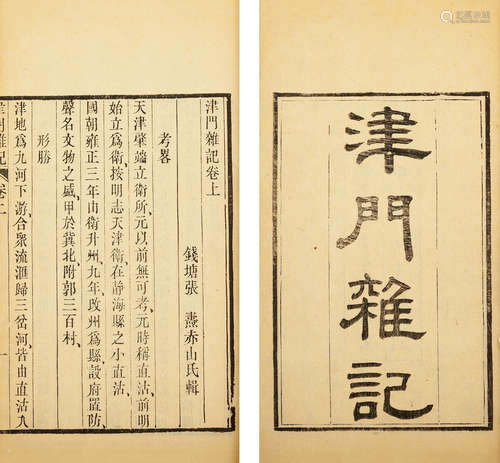 津門雜記
津門雜記卷上
錢塘張 燾赤山氏輯
考畧
天津肇端立衛所、元以前無可考、元時稱直沽、前明
始立爲衛按明志天津衛在靜海縣之小直沽、
國朝雍正三年由衛升州、九年、改州爲縣、設府置防、
聲名文物之盛、甲於冀北、附郭三百村、
形勝
津地爲九河下游、合衆流滙歸三岔河、皆由直沽入
津門雜記
一